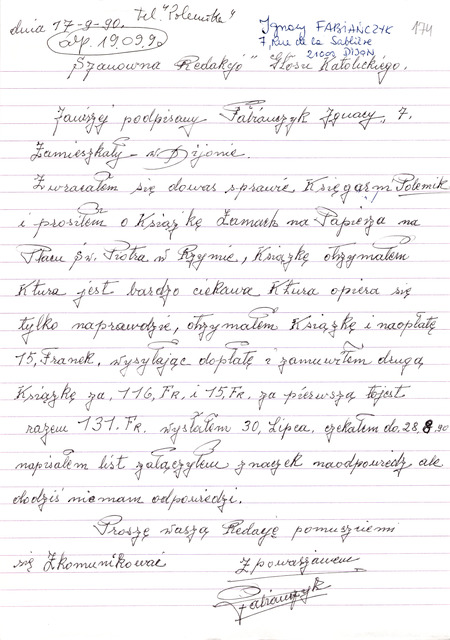 dnia 17-9-90. tel. "Polemika"
odp. 19.09.90
Ignacy FABIAŃCZYK 174
7, Rue de la Sablière
21000 DIJON
Szanowna Redakcjo "Głosu Katolickiego.
Zaniżej podpisany Fabiańczyk Ignacy, 7.
Zamieszkały – w Dijonie.
Zwracałem się dowas sprawie Księgarm Polemik
i prosiłem o Książkę Zamach na Papieża na
Placu św. Piotra w Rzymie, Książkę otrzymałem
Ktura jest bardzo ciekawa Ktura opiera się
tylko naprawdzie, otrzymałem Książkę i naopłatę
15, Franek, wysyłając dopłatę i zamuwiłem drugą
Książkę za, 116, FR, i 15, FR. za pierwszą tojest
razem 131. FR. wysłałem 30, Lipca, czekałem do, 28, 8, 90
napisałem list załączyłem znaczek naodpowiedz ale
dodziś niemam odpowiedzi.
Proszę waszą Redację pomuszciemi
się Zkomunikować Zpoważaniem
Fabiańczyk